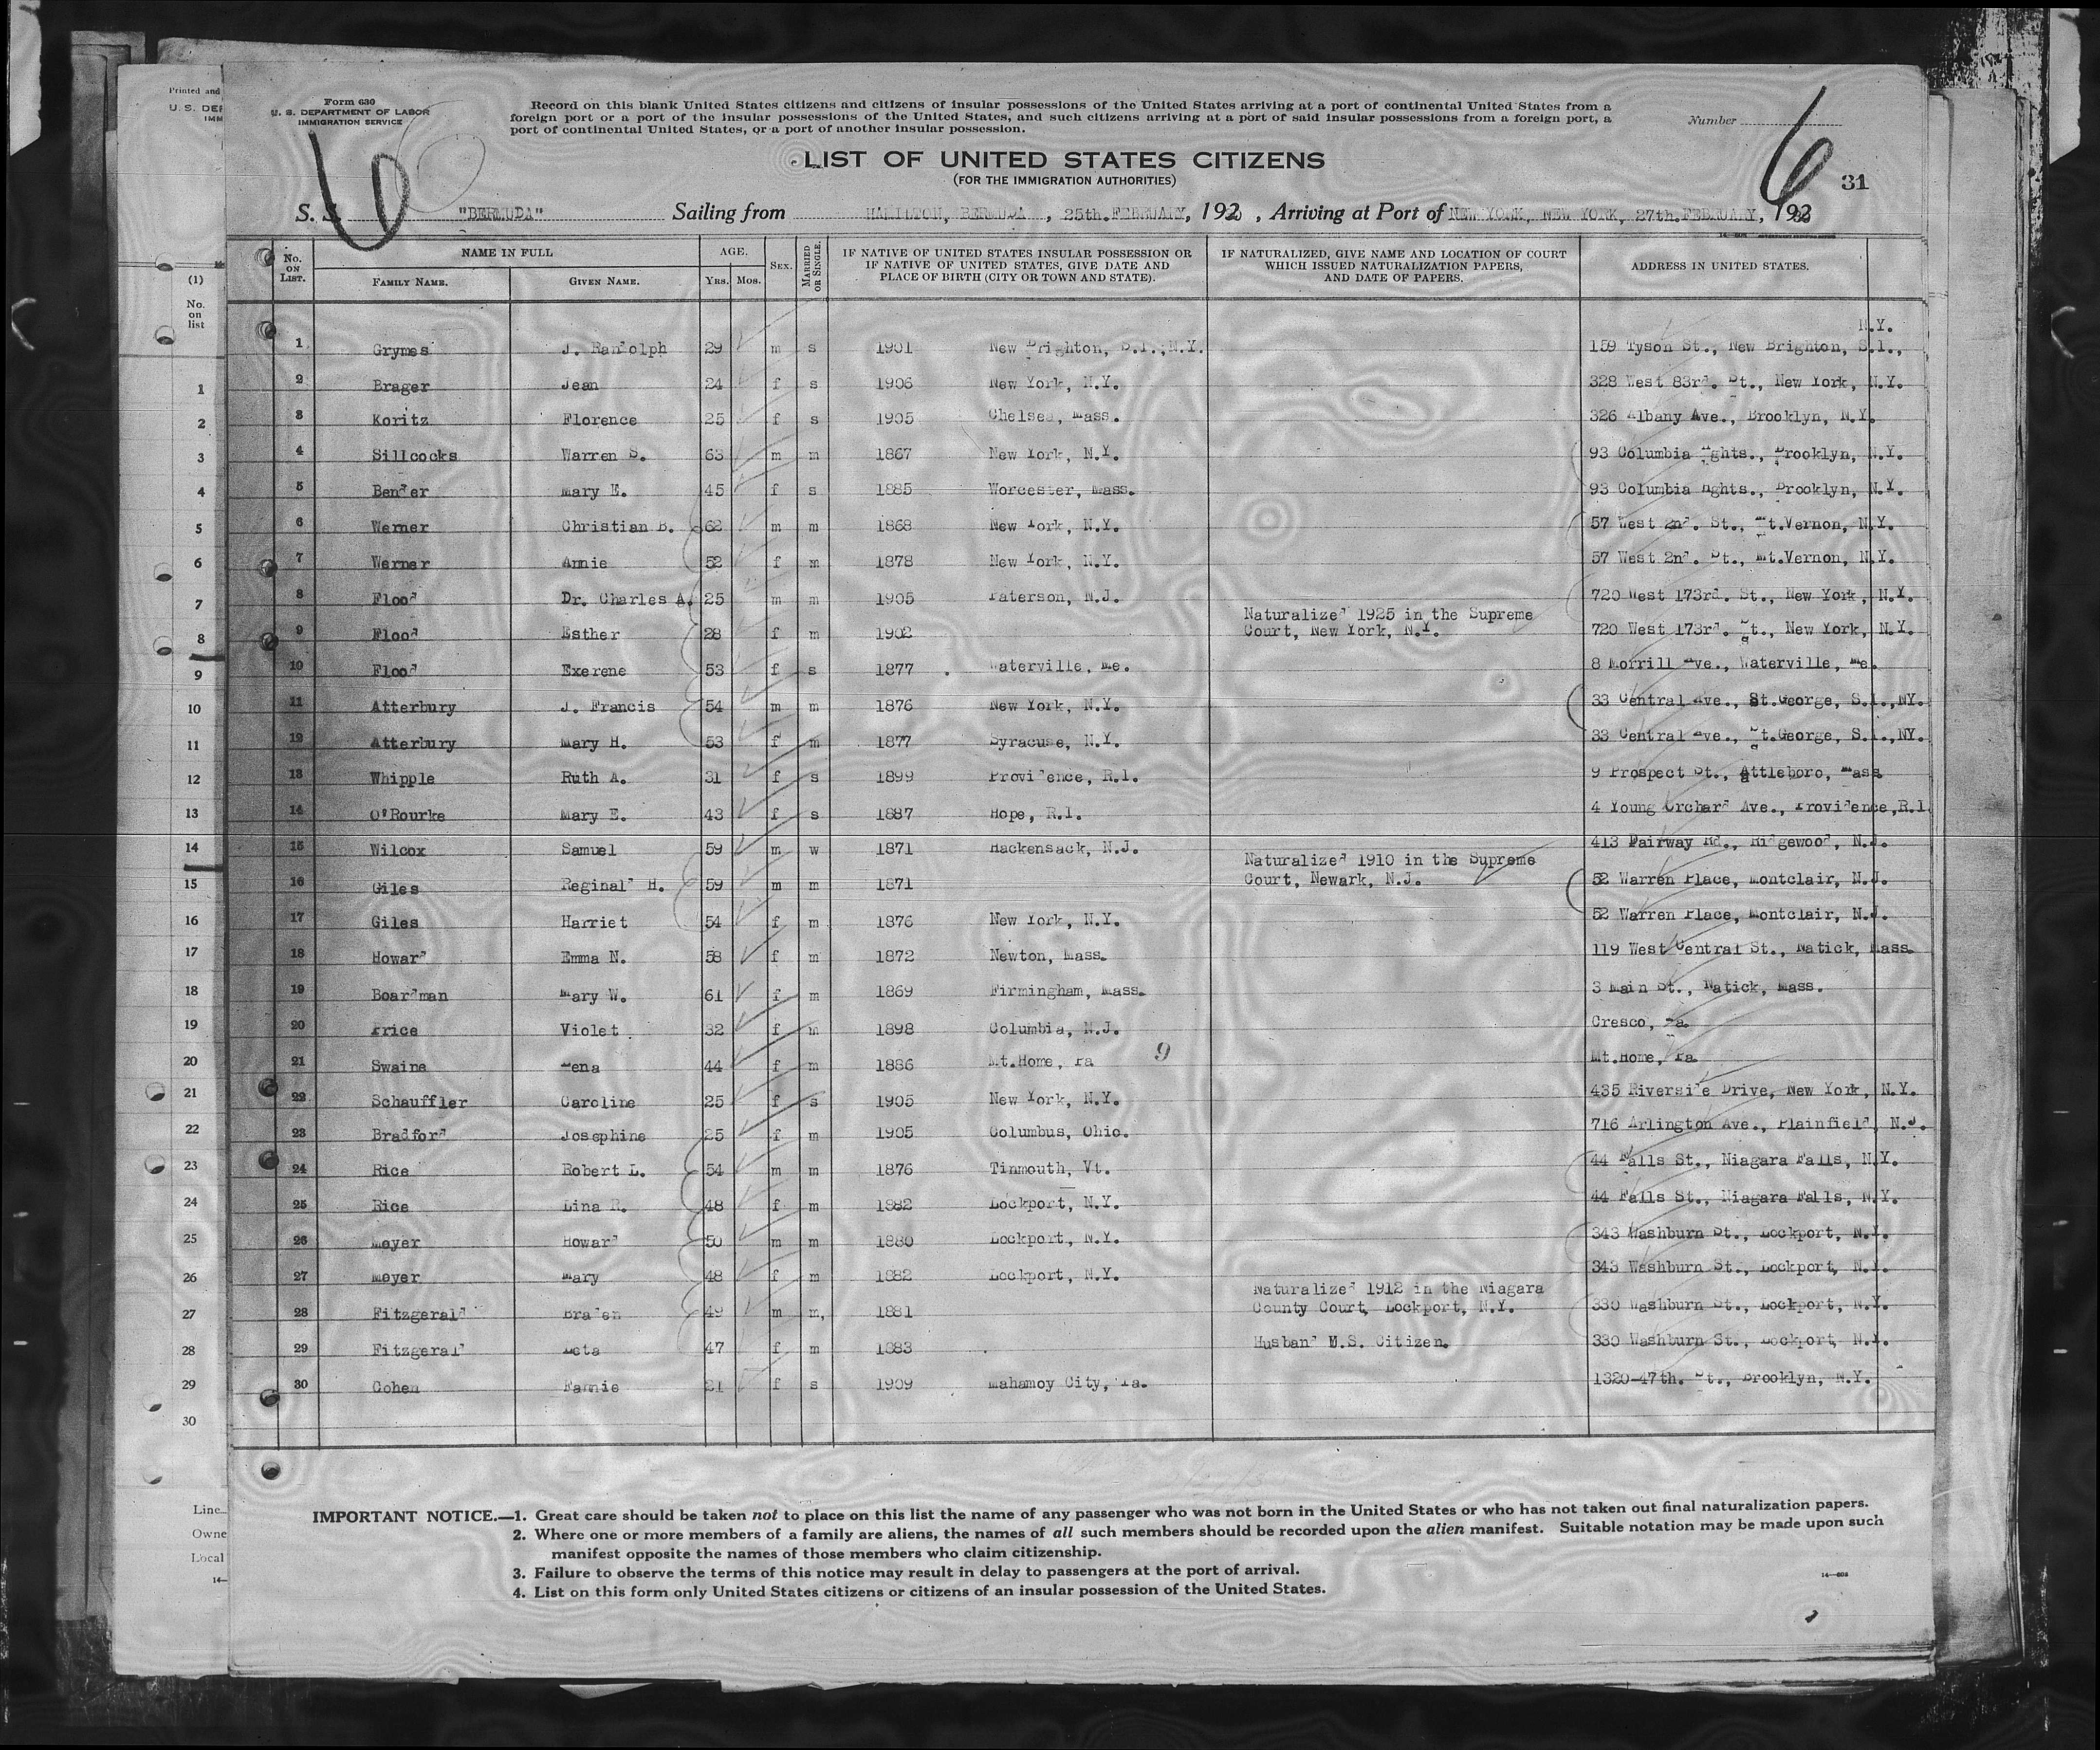 Printed and
U. S. DEP
IMM
Form 630
U. S. DEPARTMENT OF LABOR
IMMIGRATION SERVICE
6
Record on this blank United States citizens and citizens of insular possessions of the United States arriving at a port of continental United States from a
foreign port or a port of the insular possessions of the United States, and such citizens arriving at a port of said insular possessions from a foreign port, a
port of continental United States, or a port of another insular possession.
Number
6
31
LIST OF UNITED STATES CITIZENS
(FOR THE IMMIGRATION AUTHORITIES)
S. S. "BERMUDA" Sailing from HAMILTON, BERMUDA, 25th.FEBRUARY, 192 , Arriving at Port of NEW YORK, NEW YORK, 27th.FEBRUARY, 192
(1)
No.
on
list
No. ON LIST. NAME IN FULL FAMILY NAME. GIVEN NAME. AGE. YRS. MOS. SEX. MARRIED OR SINGLE. IF NATIVE OF UNITED STATES INSULAR POSSESSION OR IF NATIVE OF UNITED STATES, GIVE DATE AND PLACE OF BIRTH (CITY OR TOWN AND STATE). IF NATURALIZED, GIVE NAME AND LOCATION OF COURT WHICH ISSUED NATURALIZATION PAPERS, AND DATE OF PAPERS. ADDRESS IN UNITED STATES.
N.Y.
1 Grymes J. Randolph 29 m s 1901 New Brighton, S.I.,N.Y. 159 Tyson St., New Brighton, S.I.,
2 Brager Jean 24 f s 1906 New York, N.Y. 328 West 83rd. St., New York, N.Y.
3 Koritz Florence 25 f s 1905 Chelsea, Mass. 326 Albany Ave., Brooklyn, N.Y.
4 Sillcocks Warren S. 63 m m 1867 New York, N.Y. 93 Columbia Hghts., Brooklyn, N.Y.
5 Bender Mary E. 45 f s 1885 Worcester, Mass. 93 Columbia Hghts., Brooklyn, N.Y.
6 Werner Christian B. 62 m m 1868 New York, N.Y. 57 West 2nd. St., Mt.Vernon, N.Y.
7 Werner Annie 52 f m 1878 New York, N.Y. 57 West 2nd. St., Mt.Vernon, N.Y.
8 Flood Dr. Charles A. 25 m m 1905 Paterson, N.J. 720 West 173rd. St., New York, N.Y.
9 Flood Esther 28 f m 1902 Naturalized 1925 in the Supreme Court, New York, N.Y. 720 West 173rd. St., New York, N.Y.
10 Flood Exerene 53 f s 1877 Waterville, Me. 8 Morrill Ave., Waterville, Me.
11 Atterbury J. Francis 54 m m 1876 New York, N.Y. 33 Central Ave., St.George, S.I.,NY.
12 Atterbury Mary H. 53 f m 1877 Syracuse, N.Y. 33 Central Ave., St.George, S.I.,NY.
13 Whipple Ruth A. 31 f s 1899 Providence, R.I. 9 Prospect St., Attleboro, Mass
14 O'Rourke Mary E. 43 f s 1887 Hope, R.I. 4 Young Orchard Ave., Providence,R.I.
15 Wilcox Samuel 59 m w 1871 Hackensack, N.J. 413 Fairway Rd., Ridgewood, N.J.
16 Giles Reginald H. 59 m m 1871 Naturalized 1910 in the Supreme Court, Newark, N.J. 52 Warren Place, Montclair, N.J.
17 Giles Harriet 54 f m 1876 New York, N.Y. 52 Warren Place, Montclair, N.J.
18 Howard Emma N. 58 f m 1872 Newton, Mass. 119 West Central St., Natick, Mass.
19 Boardman Mary W. 61 f m 1869 Firmingham, Mass. 3 Main St., Natick, Mass.
20 Price Violet 32 f m 1898 Columbia, N.J. Cresco, Pa.
21 Swaine Lena 44 f m 1886 Mt.Home, Pa 9 Mt.Home, Pa.
22 Schauffler Caroline 25 f s 1905 New York, N.Y. 435 Riverside Drive, New York, N.Y.
23 Bradford Josephine 25 f m 1905 Columbus, Ohio. 716 Arlington Ave., Plainfield, N.J.
24 Rice Robert L. 54 m m 1876 Tinmouth, Vt. 44 Falls St., Niagara Falls, N.Y.
25 Rice Lina R. 48 f m 1882 Lockport, N.Y. 44 Falls St., Niagara Falls, N.Y.
26 Meyer Howard 50 m m 1880 Lockport, N.Y. 343 Washburn St., Lockport, N.Y.
27 Meyer Mary 48 f m 1882 Lockport, N.Y. 343 Washburn St., Lockport, N.Y.
28 Fitzgerald Braden 49 m m, 1881 Naturalized 1912 in the Niagara County Court, Lockport, N.Y. 330 Washburn St., Lockport, N.Y.
29 Fitzgerald Leta 47 f m 1883 Husband U.S. Citizen. 330 Washburn St., Lockport, N.Y.
30 Cohen Fannie 21 f s 1909 Mahamoy City, Pa. 1320-47th. St., Brooklyn, N.Y.
1
2
3
4
5
6
7
8
9
10
11
12
13
14
15
16
17
18
19
20
21
22
23
24
25
26
27
28
29
30
Line
Owne
Local
14—
IMPORTANT NOTICE.—1. Great care should be taken not to place on this list the name of any passenger who was not born in the United States or who has not taken out final naturalization papers.
2. Where one or more members of a family are aliens, the names of all such members should be recorded upon the alien manifest. Suitable notation may be made upon such
manifest opposite the names of those members who claim citizenship.
3. Failure to observe the terms of this notice may result in delay to passengers at the port of arrival.
4. List on this form only United States citizens or citizens of an insular possession of the United States.
14—608